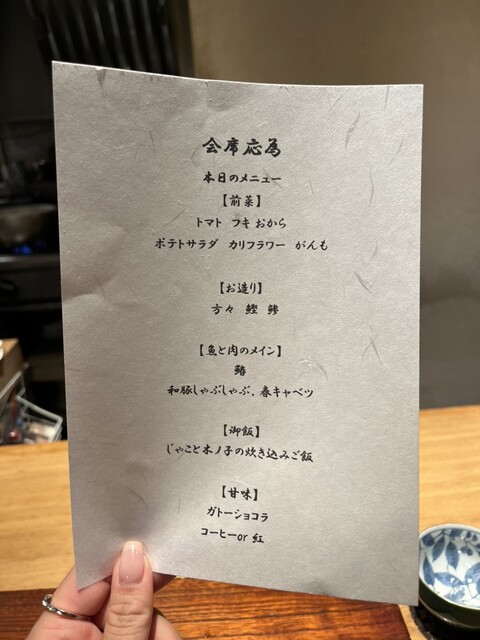 会席応為
本日のメニュー
【前菜】
トマト フキ おから
ポテトサラダ カリフラワー がんも
【お造り】
方々 鰹 鰺
【魚と肉のメイン】
鰆
和豚しゃぶしゃぶ、春キャベツ
【御飯】
じゃこと木ノ子の炊き込みご飯
【甘味】
ガトーショコラ
コーヒーor 紅